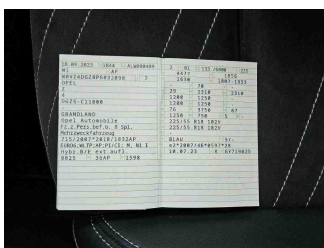 18.09.2023 1844 ALW000404
M1 AP
Z
OPEL
Z
4
DGZS-C11000
GRANDLAND
Opel Automobile
Fz.z.Pers.bef.b. 8 Spl.
Mehrzweckfahrzeug
715/2007*2018/1832AP
EURO6;WLTP;AP;PI/CI; M, N1 I
Hybr.B/E ext.aufl.
0625 36AP 1598
3 01 133 /6000 225
4477 1856
1630 1807-1833
70
39 2310 2310
1200 1250
1200 1250
76 3750 67
1250 750 5
225/55 R18 102V
225/55 R18 102V
BLAU
10.07.23 K